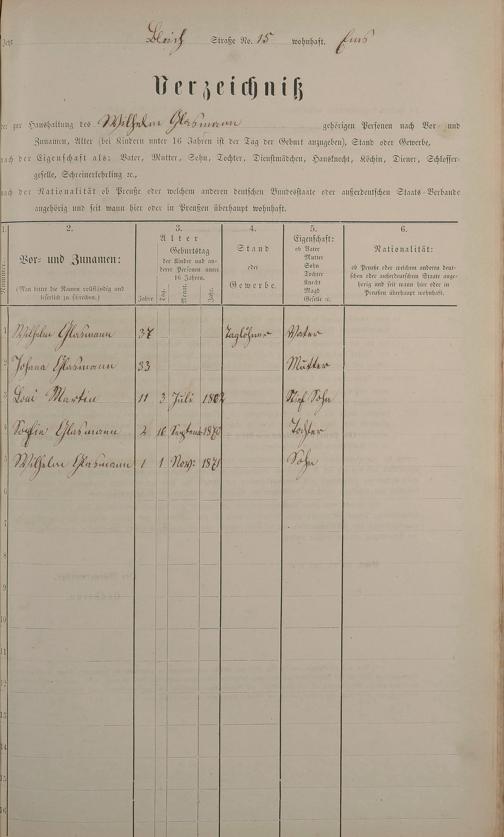 Bleich Straße No. 15 wohnhaft. Ems
Verzeichniß
der zur Haushaltung des Wilhelm Glasmann gehörigen Personen nach Vor- und
Zunamen, Alter (bei Kindern unter 16 Jahren ist der Tag der Geburt anzugeben), Stand oder Gewerbe,
nach der Eigenschaft als: Vater, Mutter, Sohn, Tochter, Dienstmädchen, Hausknecht, Köchin, Diener, Schlosser-
geselle, Schreinerlehrling ꝛc.,
nach der Nationalität ob Preuße oder welchem anderen deutschen Bundesstaate oder außerdeutschen Staats-Verbande
angehörig und seit wann hier oder in Preußen überhaupt wohnhaft.
1. 2. 3. 4. 5. 6.
Nummer.
Vor- und Zunamen:
(Man bittet die Namen vollständig und
leserlich zu schreiben.)
Alter
Geburtstag
der Kinder und an-
derer Personen unter
16 Jahren.
Jahre Tag. Monat. Jahr.
Stand
oder
Gewerbe.
Eigenschaft:
ob Vater
Mutter
Sohn
Tochter
Knecht
Magd
Geselle ꝛc.
Nationalität:
ob Preuße oder welchem andern deut-
schen oder außerdeutschen Staate ange-
hörig und seit wann hier oder in
Preußen überhaupt wohnhaft.
1 Wilhelm Glasmann 37 Taglöhner Vater
2 Johana Glasmann 33 Mutter
3 Loui Martin 11 3 Juli 1862 Stief Sohn
4 Sophie Glasmann 2 16 1870 Tochter
5 Wilhelm Glasmann 1 1 Nov: 1871 Sohn
6
7
8
9
10
11
12
13
14
15
16